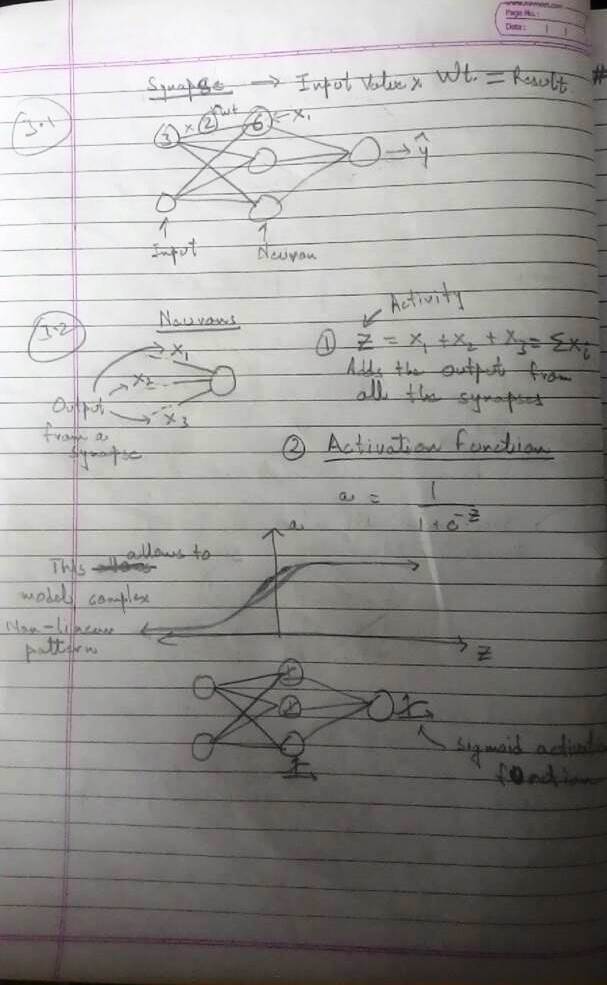 Page No.:
Date:
Synapse → Input Value x Wt. = Result. #
3.1
3 x 2 Wt 6 = x₁
→ ŷ
Input
Neuron
3.2
Neurons
x₁
x₂
x₃
Output
from a
synapse
Activity
① Z = x₁ + x₂ + x₃ = Σxᵢ
Adds the output from
all the synapses
② Activation Function
a = 1 / 1 + e^-z
a
This allows to
model complex
Non-linear
pattern
z
sigmoid activati
function